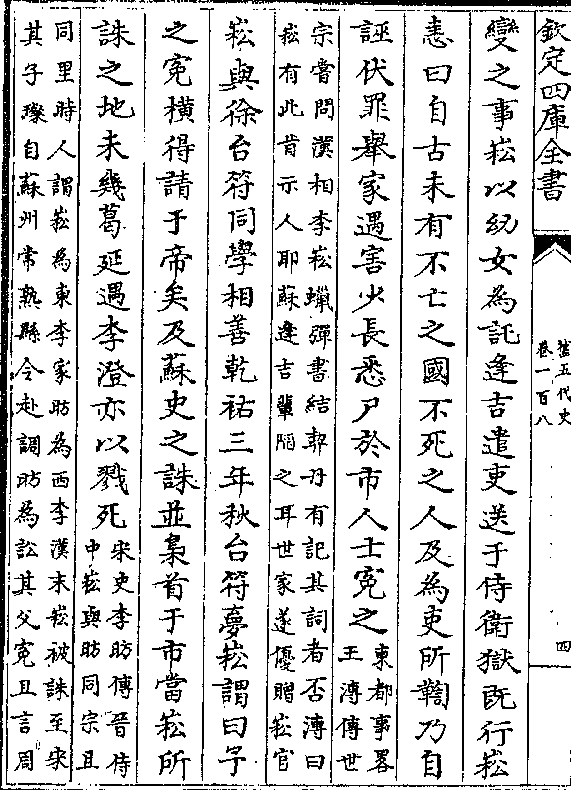 欽定四庫全書
舊五代史
卷一百八
四
變之事崧以幼女為託逢吉遣吏送于侍衛獄既行崧
恚曰自古未有不亡之國不死之人及為吏所鞫乃自
誣伏罪舉家遇害少長悉尸於市人士寃之
東都事畧
王溥傳世
宗嘗問漢相李崧蠟彈書結契丹有記其詞者否溥曰
崧有此肯示人耶蘇逢吉輩陷之耳世家遂優贈崧官
崧與徐台符同學相善乾祐三年秋台符夢崧謂曰子
之寃橫得請于帝矣及蘇史之誅並梟首于市當崧所
誅之地未幾葛延遇李澄亦以戮死
宋史李昉傳晉侍
中崧與昉同宗且
同里時人謂崧為東李家昉為西李漢末崧被誅至宋
其子璨自蘇州常熟縣令赴調昉為訟其父寃且言周